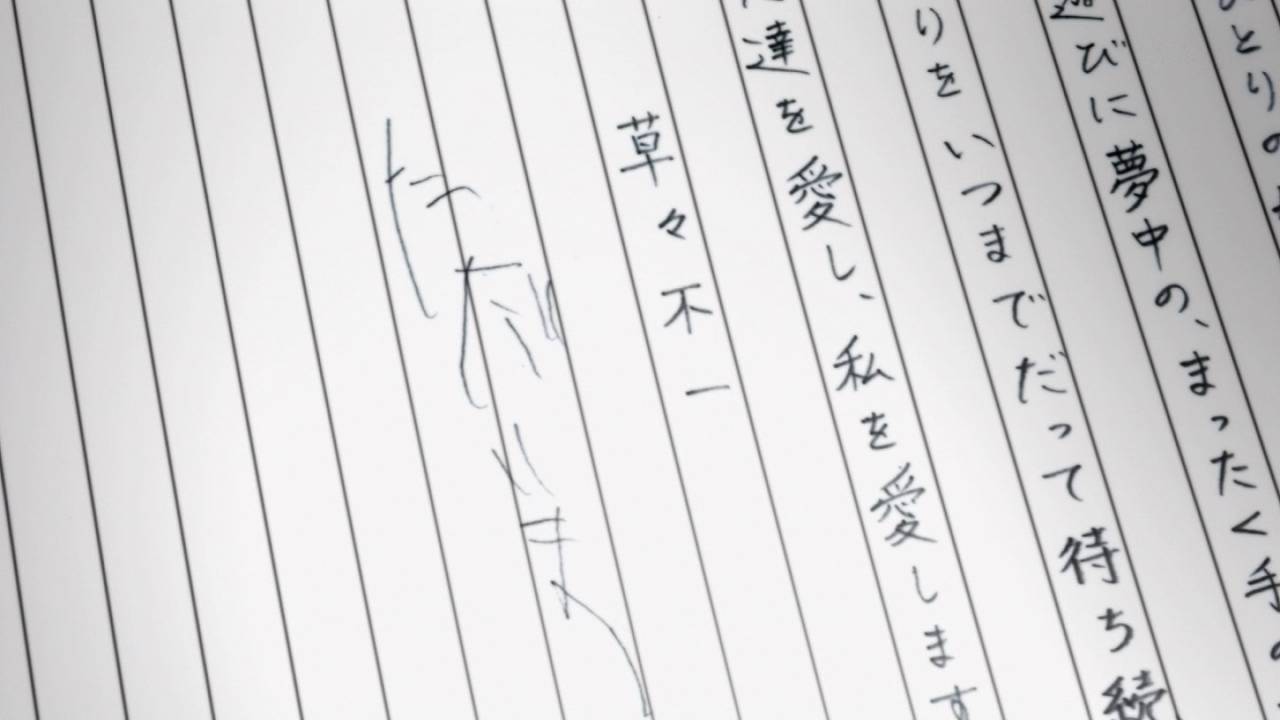 とりの
びに夢中の、まったく手の
りをいつまでだって待ち続
達を愛し、私を愛します
草々不一